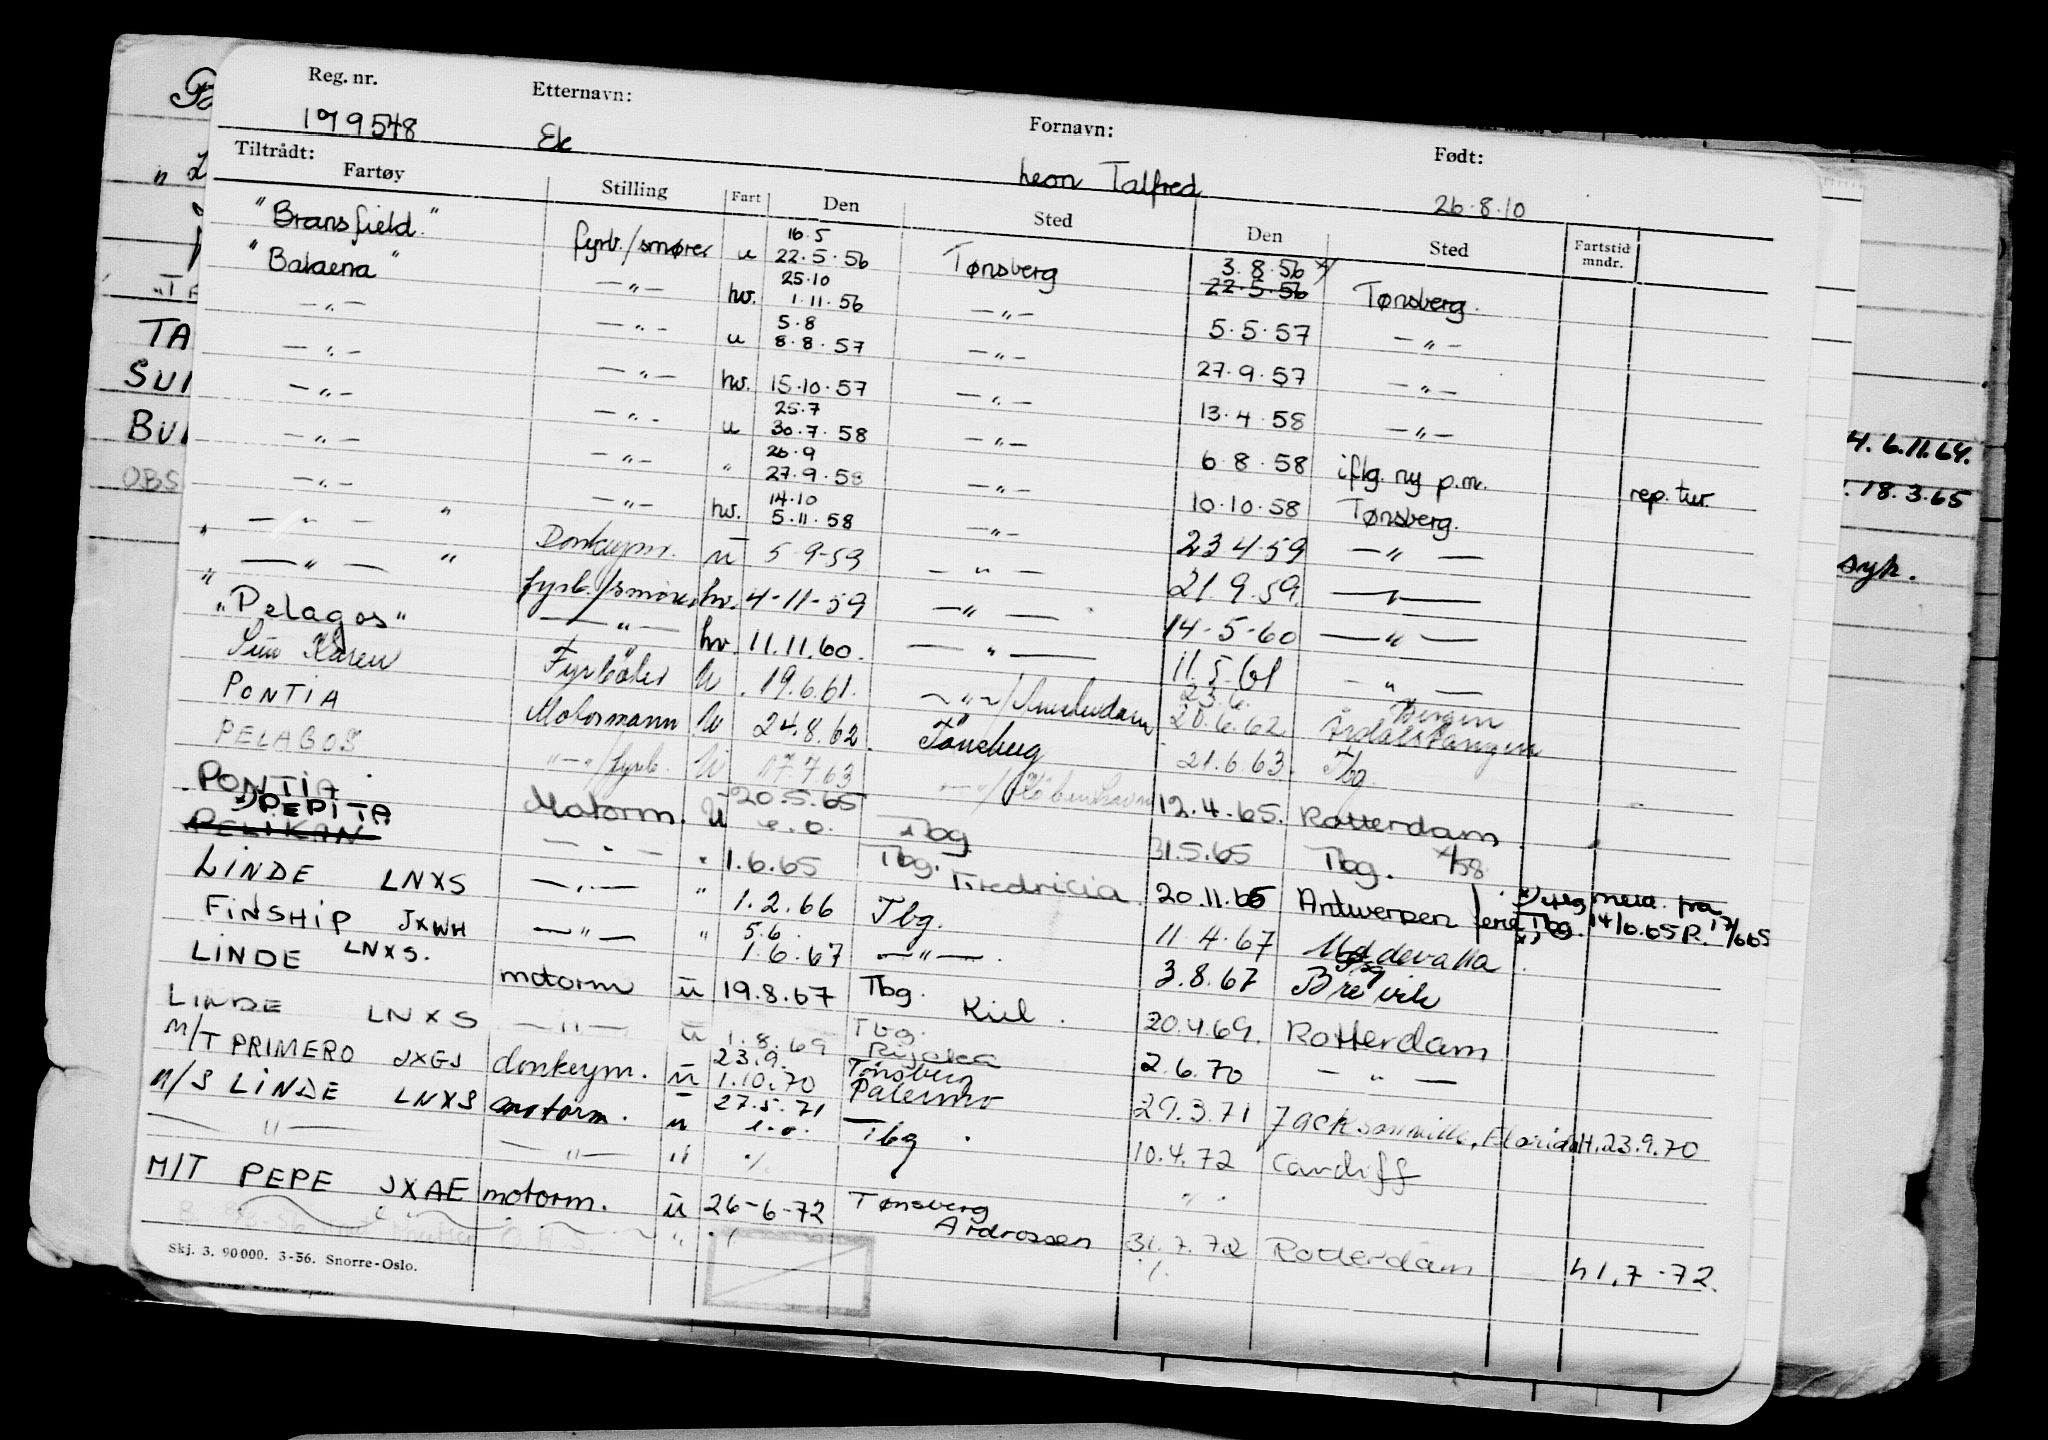 Reg. nr. Etternavn: Fornavn: Født:
179548 Ek Leon Talfred 26.8.10
Tiltrådt:
Fartøy Stilling Fart Den Sted Den Sted Fartstid mndr.
"Bransfield" fyrb./smører u 16.5 22.5.56 Tønsberg 3.8.56 x/ 22.5.56 Tønsberg.
"Balaena" —"— hv. 25.10 1.11.56 —"— 5.5.57 —"—
—"— —"— u 5.8 8.8.57 —"— 27.9.57 —"—
—"— —"— hv. 15.10.57 —"— 13.4.58 —"—
—"— —"— u 25.7 30.7.58 —"— 6.8.58 iflg. ny p.m. rep. tur.
—"— —"— " 26.9 27.9.58 —"— 10.10.58 Tønsberg.
—"— —"— hv. 14.10 5.11.58 —"— 23.4.59 —"—
" —"— " Donkeym. u 5-9-59 —"— 21.9.59. —"—
" —"— " fyrb./smører hv. 4-11-59 —"— 14-5-60 —"—
"Pelagos" —"— hv. 11.11.60. —"— 11.5.61 —"—
Karen Fyrbøter U 19.6.61. —"—/Amsterdam 23.6. 20.6.62 Bergen Årdalstangen
PONTIA Motormann U 24.8.62. Tønsberg 21.6.63. Tbg.
PELAGOS —"—/fyrb. U 17.7.63 —"—/København 12.4.65. Rotterdam
PONTIA Motorm. U 20.5.65 e.o. Tbg 31.5.65 Tbg. x/58
x) PEPITA PELIKAN —"— " 1.6.65 Tbg. Fredricia 20.11.65 Antwerpen x) iflg meld. fra Tbg. 14/6.65 R. 17/665
LINDE LNXS —"— " 1.2.66 Tbg. 11.4.67 Uddevalla
FINSHIP JXWH —"— " 5.6. 1.6.67 —"—. 3.8.67 Brevik
LINDE LNXS. motorm u 19.8.67 Tbg. Kiel. 20.4.69. Rotterdam
LINDE LNXS —"— u 1.8.69 Tbg. Rijeka 2.6.70 —"—
M/T PRIMERO JXGJ donkeym. u 23.9. 1.10.70 Tønsberg Palermo 29.3.71 Jacksonville, Florida H.23.9.70
M/S LINDE LNXS motorm. u 27.5.71 e.o. Tbg. 10.4.72 Cardiff
—"— —"— " ./. " .
M/T PEPE JXAE motorm. u 26-6-72 Tønsberg Ardrossen 31.7.72 Rotterdam h 1.7-72.
" ./. ./.
Skj. 3. 90000. 3-56. Snorre-Oslo.
TA
SUN
BU
OBS
4. 6.11.64.
18.3.65
syk.